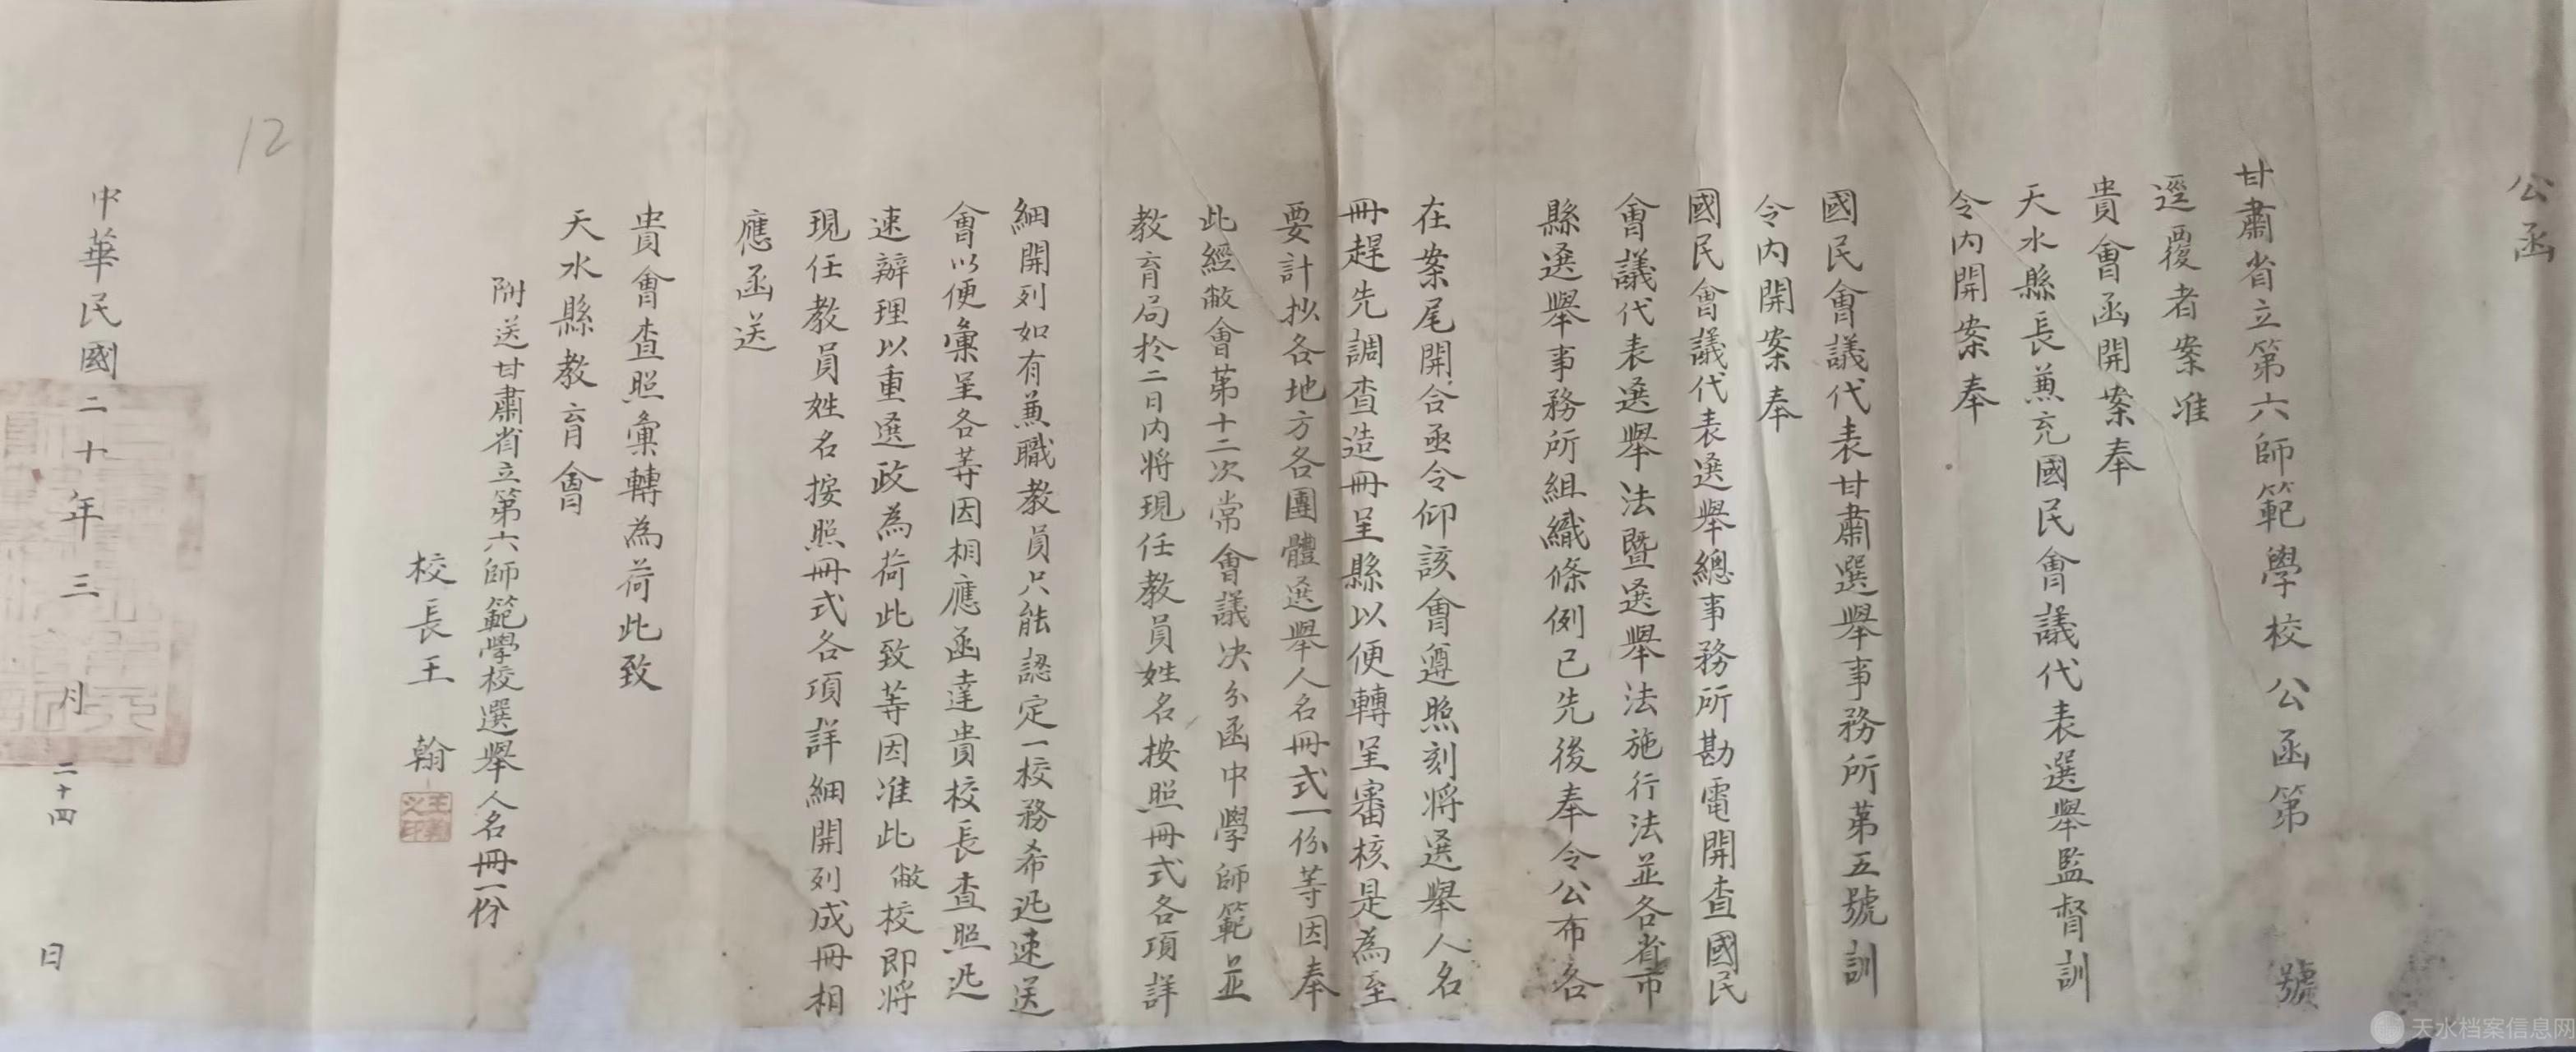 公函
甘肅省立第六師範學校公函第 號
逕覆者案准
貴會函開案奉
天水縣長兼充國民會議代表選舉監督訓
令內開案奉
國民會議代表甘肅選舉事務所第五號訓
令內開案奉
國民會議代表選舉總事務所勘電開查國民
會議代表選舉法暨選舉法施行法並各省市
縣選舉事務所組織條例已先後奉令公布各
在案尾開合亟令仰該會遵照刻將選舉人名
冊趕先調查造冊呈縣以便轉呈審核是為至
要計抄各地方各團體選舉人名冊式一份等因奉
此經敝會第十二次常會議決分函中學師範並
教育局於二日內將現任教員姓名按照冊式各項詳
細開列如有兼職教員只能認定一校務希迅速送
會以便彙呈各等因相應函達貴校長查照迅
速辦理以重選政為荷此致等因准此敝校即將
現任教員姓名按照冊式各項詳細開列成冊相
應函送
貴會查照彙轉為荷此致
天水縣教育會
附送甘肅省立第六師範學校選舉人名冊一份
校長王翰
王翰之印
12
中華民國二十年三月二十四日
天水档案信息网